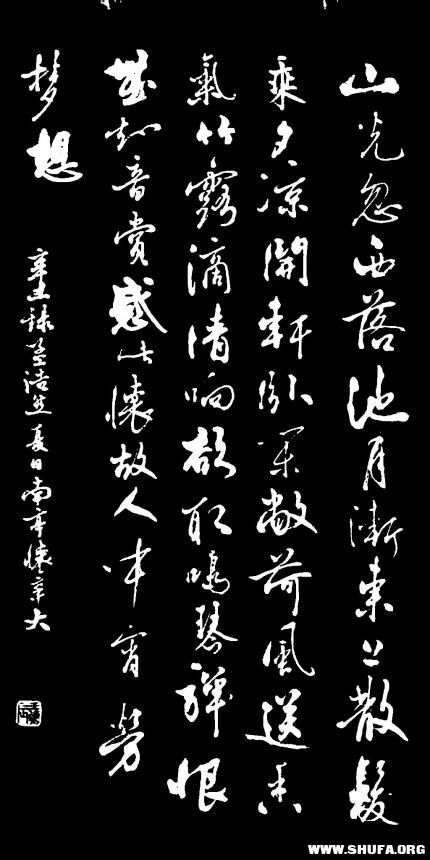 山光忽西落池月漸東上散髮
乘夕凉開軒卧閑敞荷風送香
氣竹露滴清响欲取鳴琴彈恨
無知音賞感此懷故人中宵勞
梦想
辛丑録孟浩然夏日南亭懷辛大
WWW.SHUFA.ORG